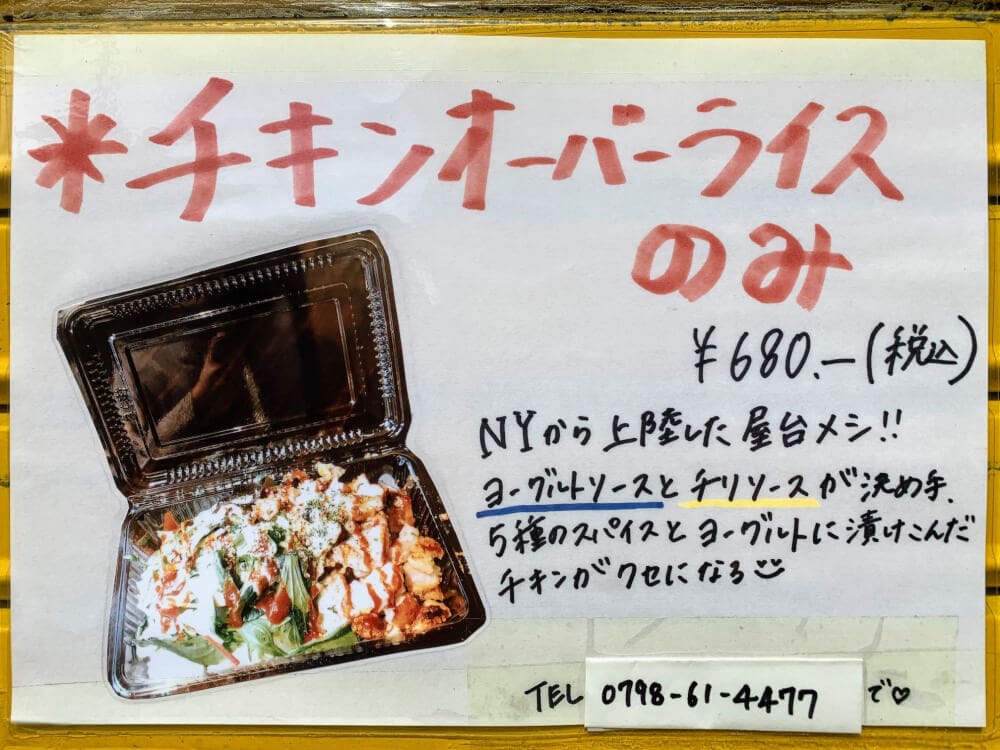 *チキンオーバーライス
のみ
¥680.-(税込)
NYから上陸した屋台メシ!!
ヨーグルトソースとチリソースが決め手.
5種のスパイスとヨーグルトに漬けこんだ
チキンがクセになる
TEL 0798-61-4477 で♡